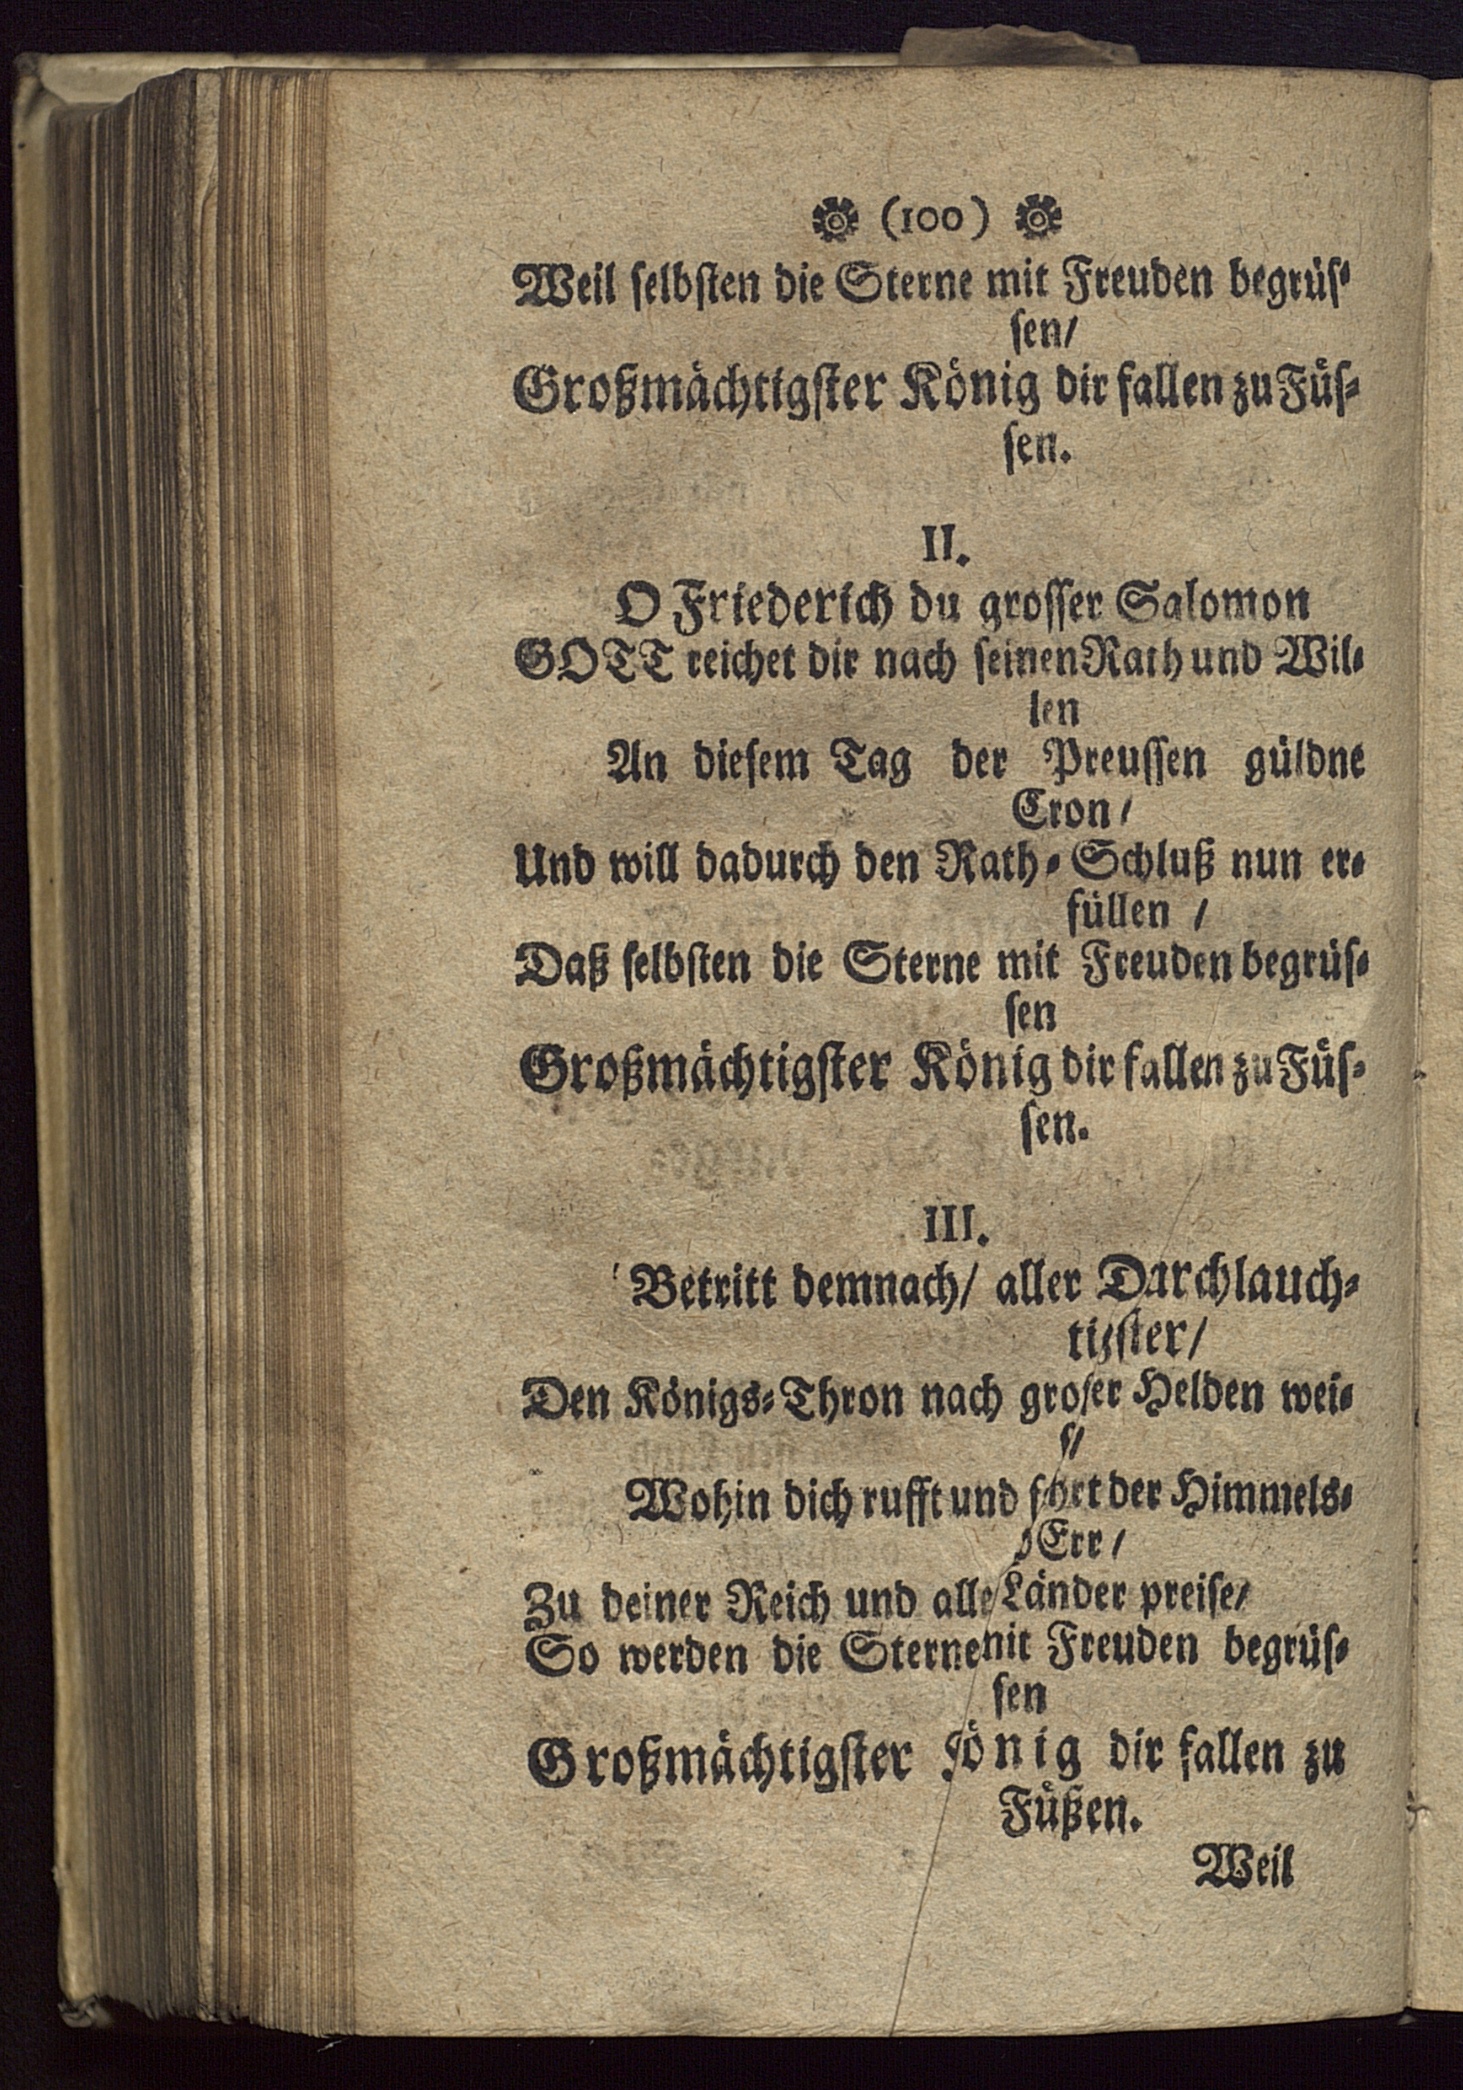 (100)
Weil selbsten die Sterne mit Freuden begrüs-
sen/
Großmächtigster König dir fallen zu Füs-
sen.
II.
O Friederich du grosser Salomon
GOTT reichet dir nach seinen Rath und Wil-
len
An diesem Tag der Preussen güldne
Cron/
Und will dadurch den Rath-Schluß nun er-
füllen /
Daß selbsten die Sterne mit Freuden begrüs-
sen
Großmächtigster König dir fallen zu Füs-
sen.
III.
Betritt demnach/ aller Durchlauch-
tigster/
Den Königs-Thron nach groser Helden wei-
Wohin dich rufft und der Himmels-
Zu deiner Reich und aller Länder preise/
So werden die Sterne mit Freuden begrüs-
sen
Großmächtigster König dir fallen zu
Füßen.
Weil